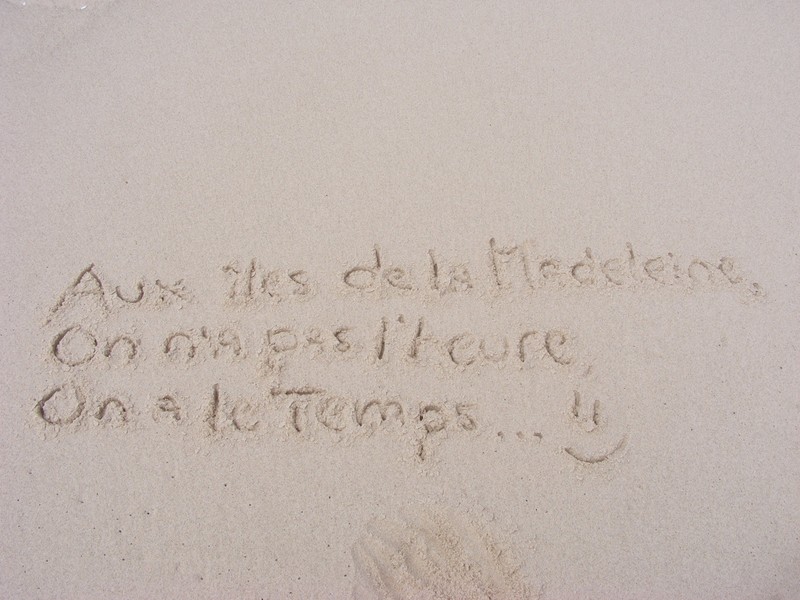 Aux îles de la Madeleine,
On n'a pas l'heure,
On a le Temps... !!